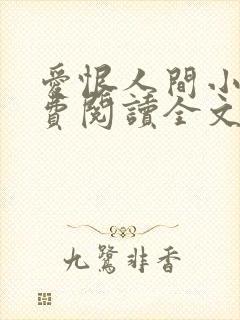 愛恨人間小
費閱讀全文
九鷺非香